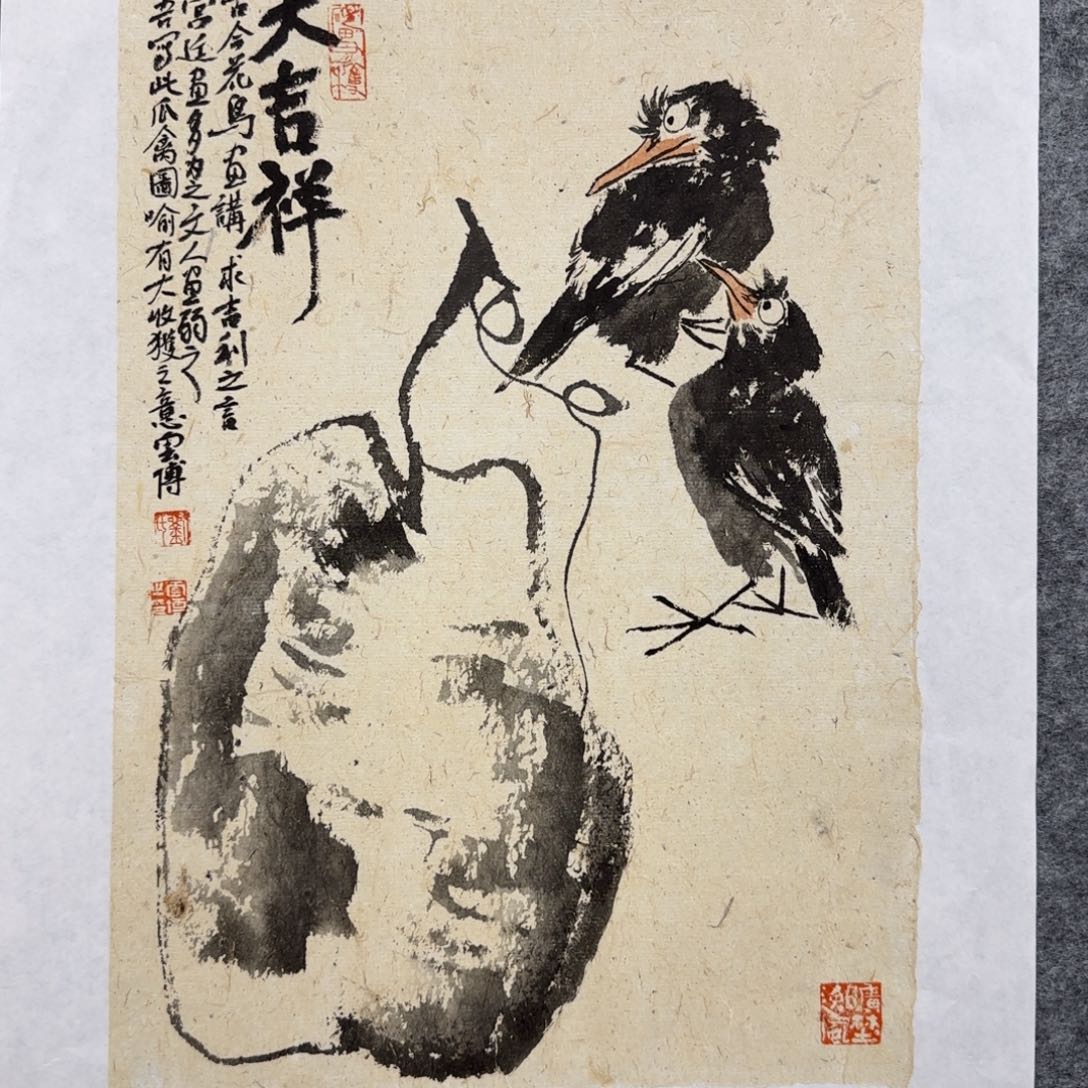 大吉祥
古今花鳥画講求吉利之言
宫廷画多为之文人画弱之
吾写此瓜禽圖喻有大收獲之意雲博